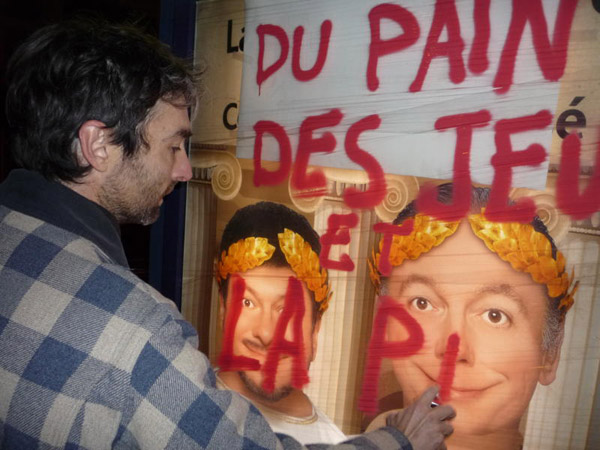 La
DU PAIN
DES JEU
ET
LA PI
é